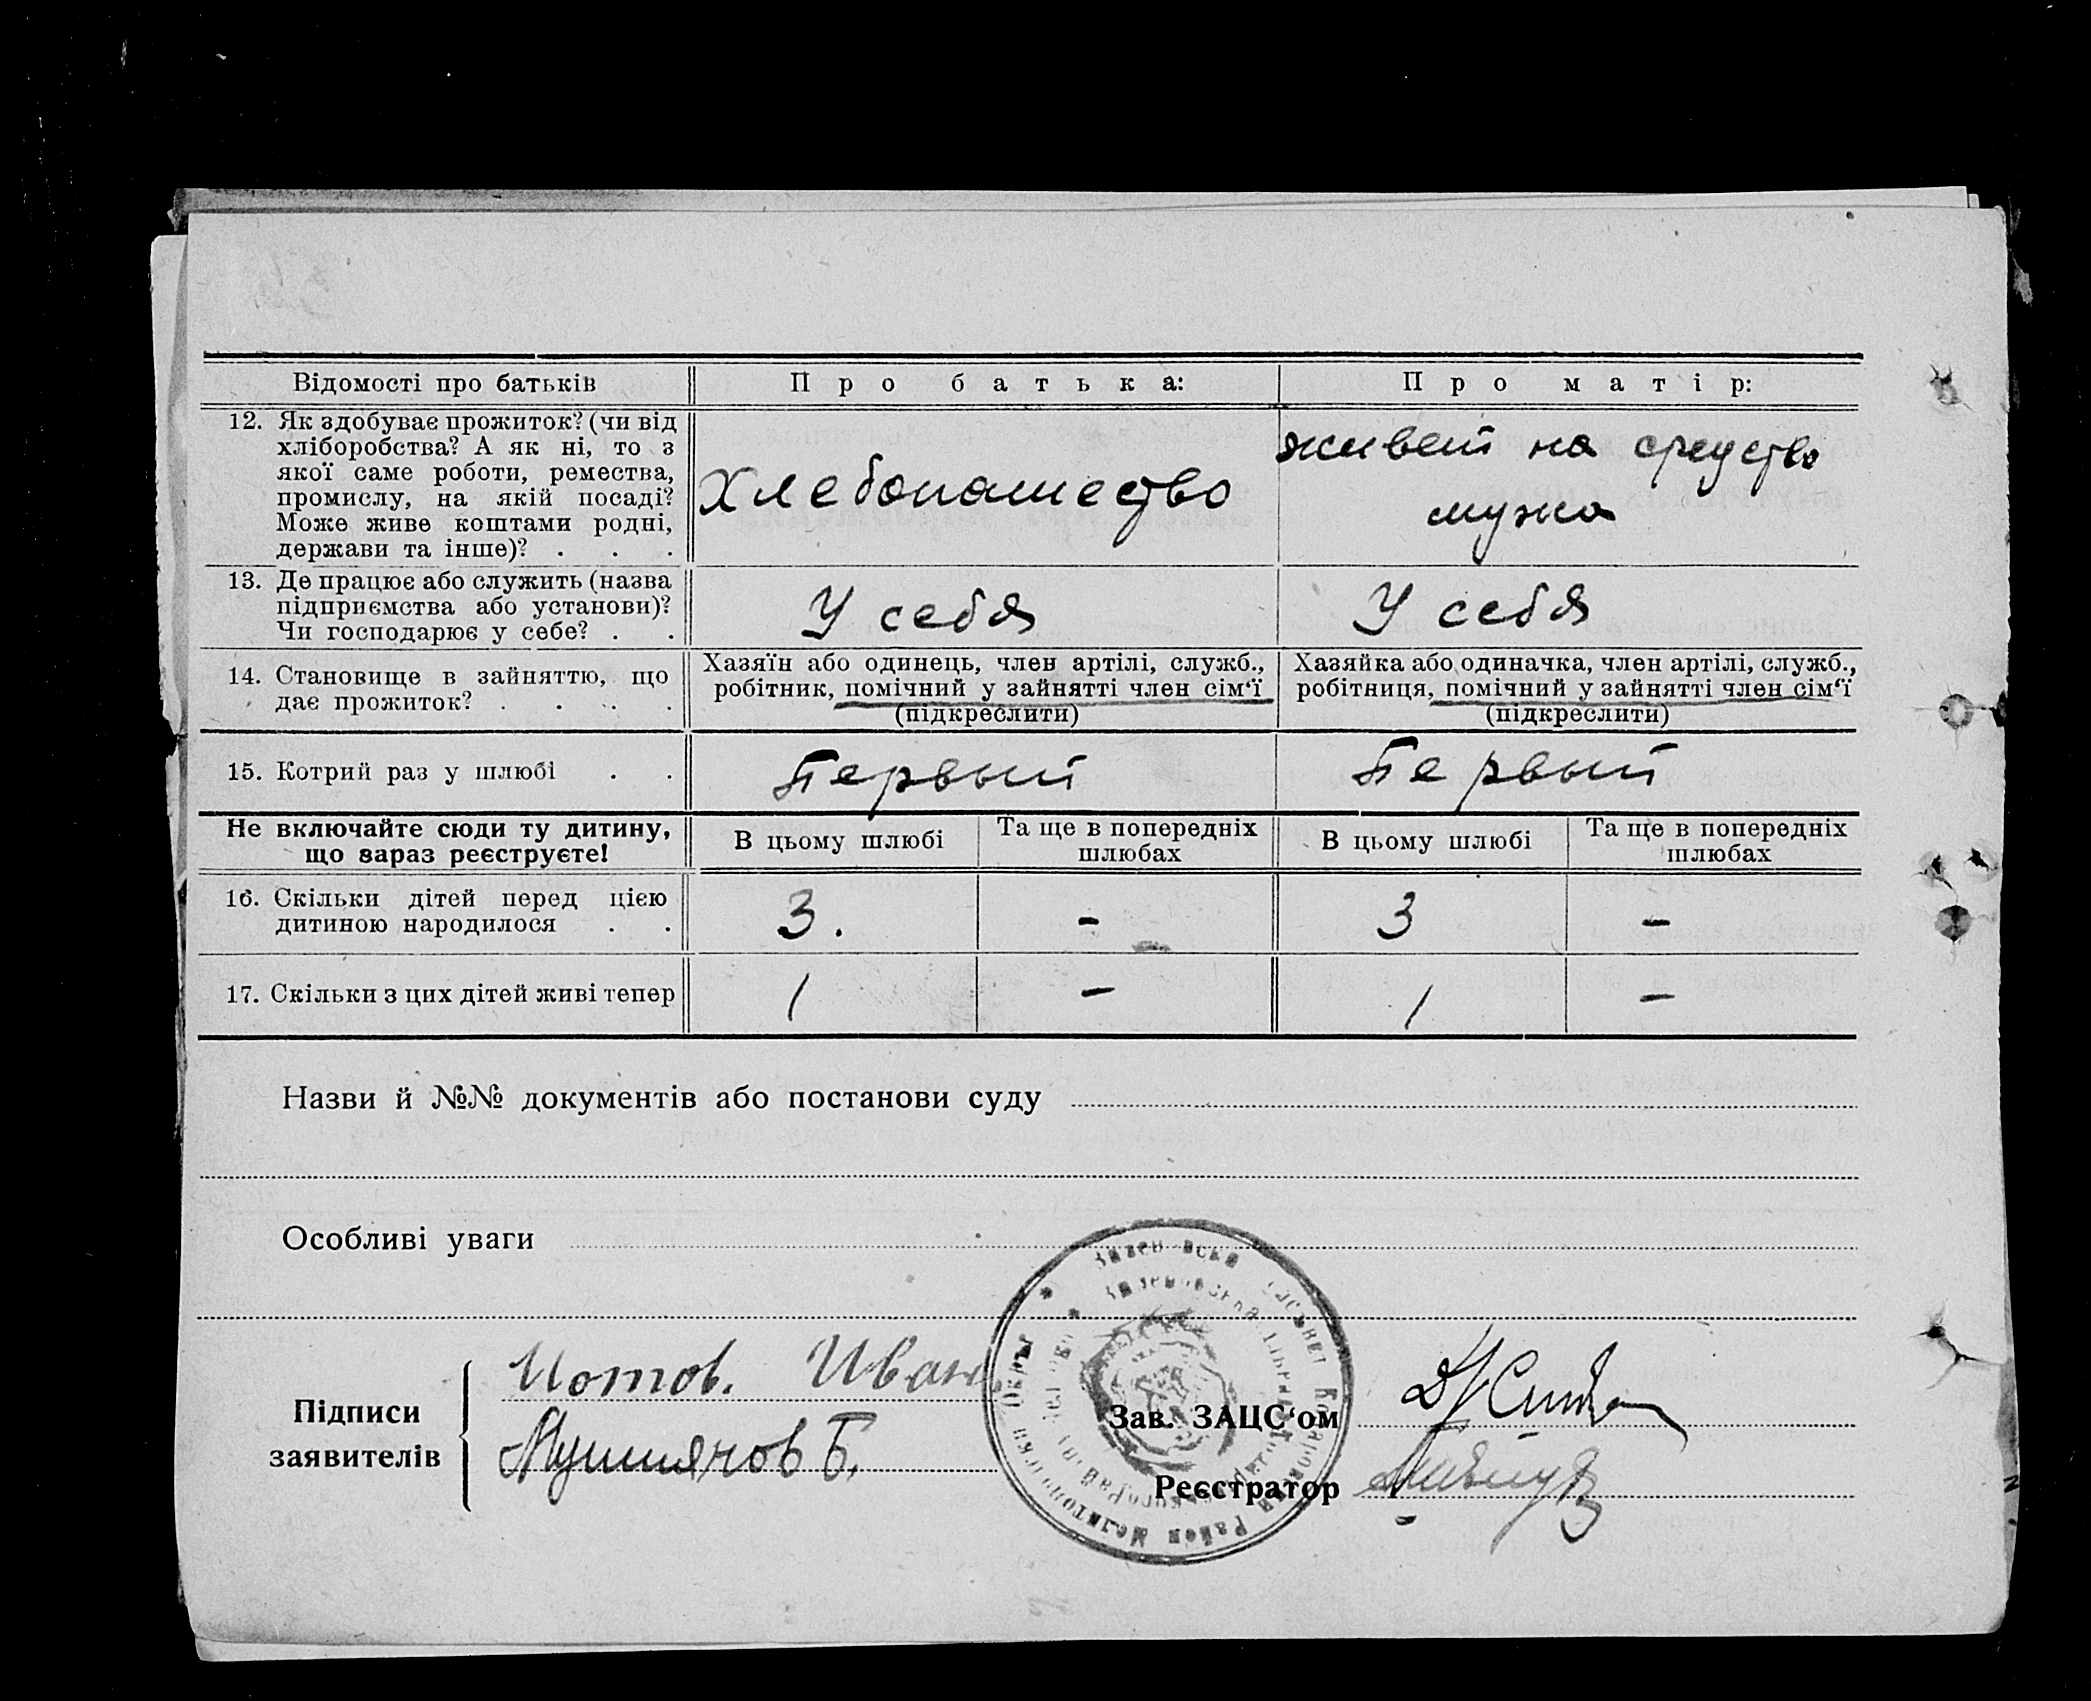 Відомості про батьків
Про батька:
Про матір:
12. Як здобуває прожиток? (чи від
хліборобства? А як ні, то з
якої саме роботи, ремества,
промислу, на якій посаді?
Може живе коштами родні,
держави та інше)? . . .
Хлебопашество
живет на средства
мужа
13. Де працює або служить (назва
підприємства або установи)?
Чи господарює у себе? . .
У себя
У себя
14. Становище в зайняттю, що
дає прожиток? . . . .
Хазяїн або одинець, член артілі, служб.,
робітник, помічний у зайнятті член сім‘ї
(підкреслити)
Хазяйка або одиначка, член артілі, служб.,
робітниця, помічний у зайнятті член сім‘ї
(підкреслити)
15. Котрий раз у шлюбі . .
Первый
Первый
Не включайте сюди ту дитину,
що зараз реєструєте!
В цьому шлюбі
Та ще в попередніх
шлюбах
В цьому шлюбі
Та ще в попередніх
шлюбах
16. Скільки дітей перед цією
дитиною народилося . .
3.
-
3
-
17. Скільки з цих дітей живі тепер
1
-
1
-
Назви й №№ документів або постанови суду
Особливі уваги
Підписи
заявителів
Иван
Б.
Зав. ЗАЦС‘ом
Реєстратор
Район